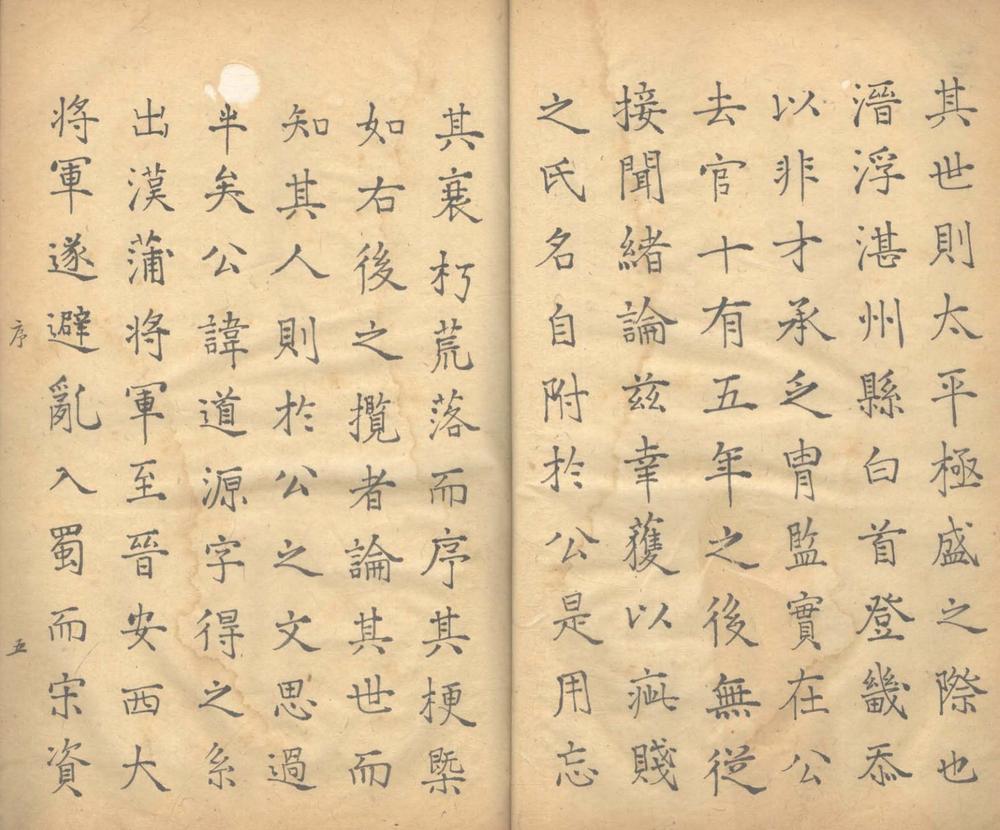 其世則太平極盛之際也
溍浮湛州縣白首登畿忝
以非才承乏胄監實在公
去官十有五年之後無從
接聞緒論兹幸獲以疵賤
之氏名自附於公是用忘
其衰朽荒落而序其梗槩
如右後之攬者論其世而
知其人則於公之文思過
半矣公諱道源字得之系
出漢蒲将軍至晉安西大
将軍遂避亂入蜀而宋資
序
五